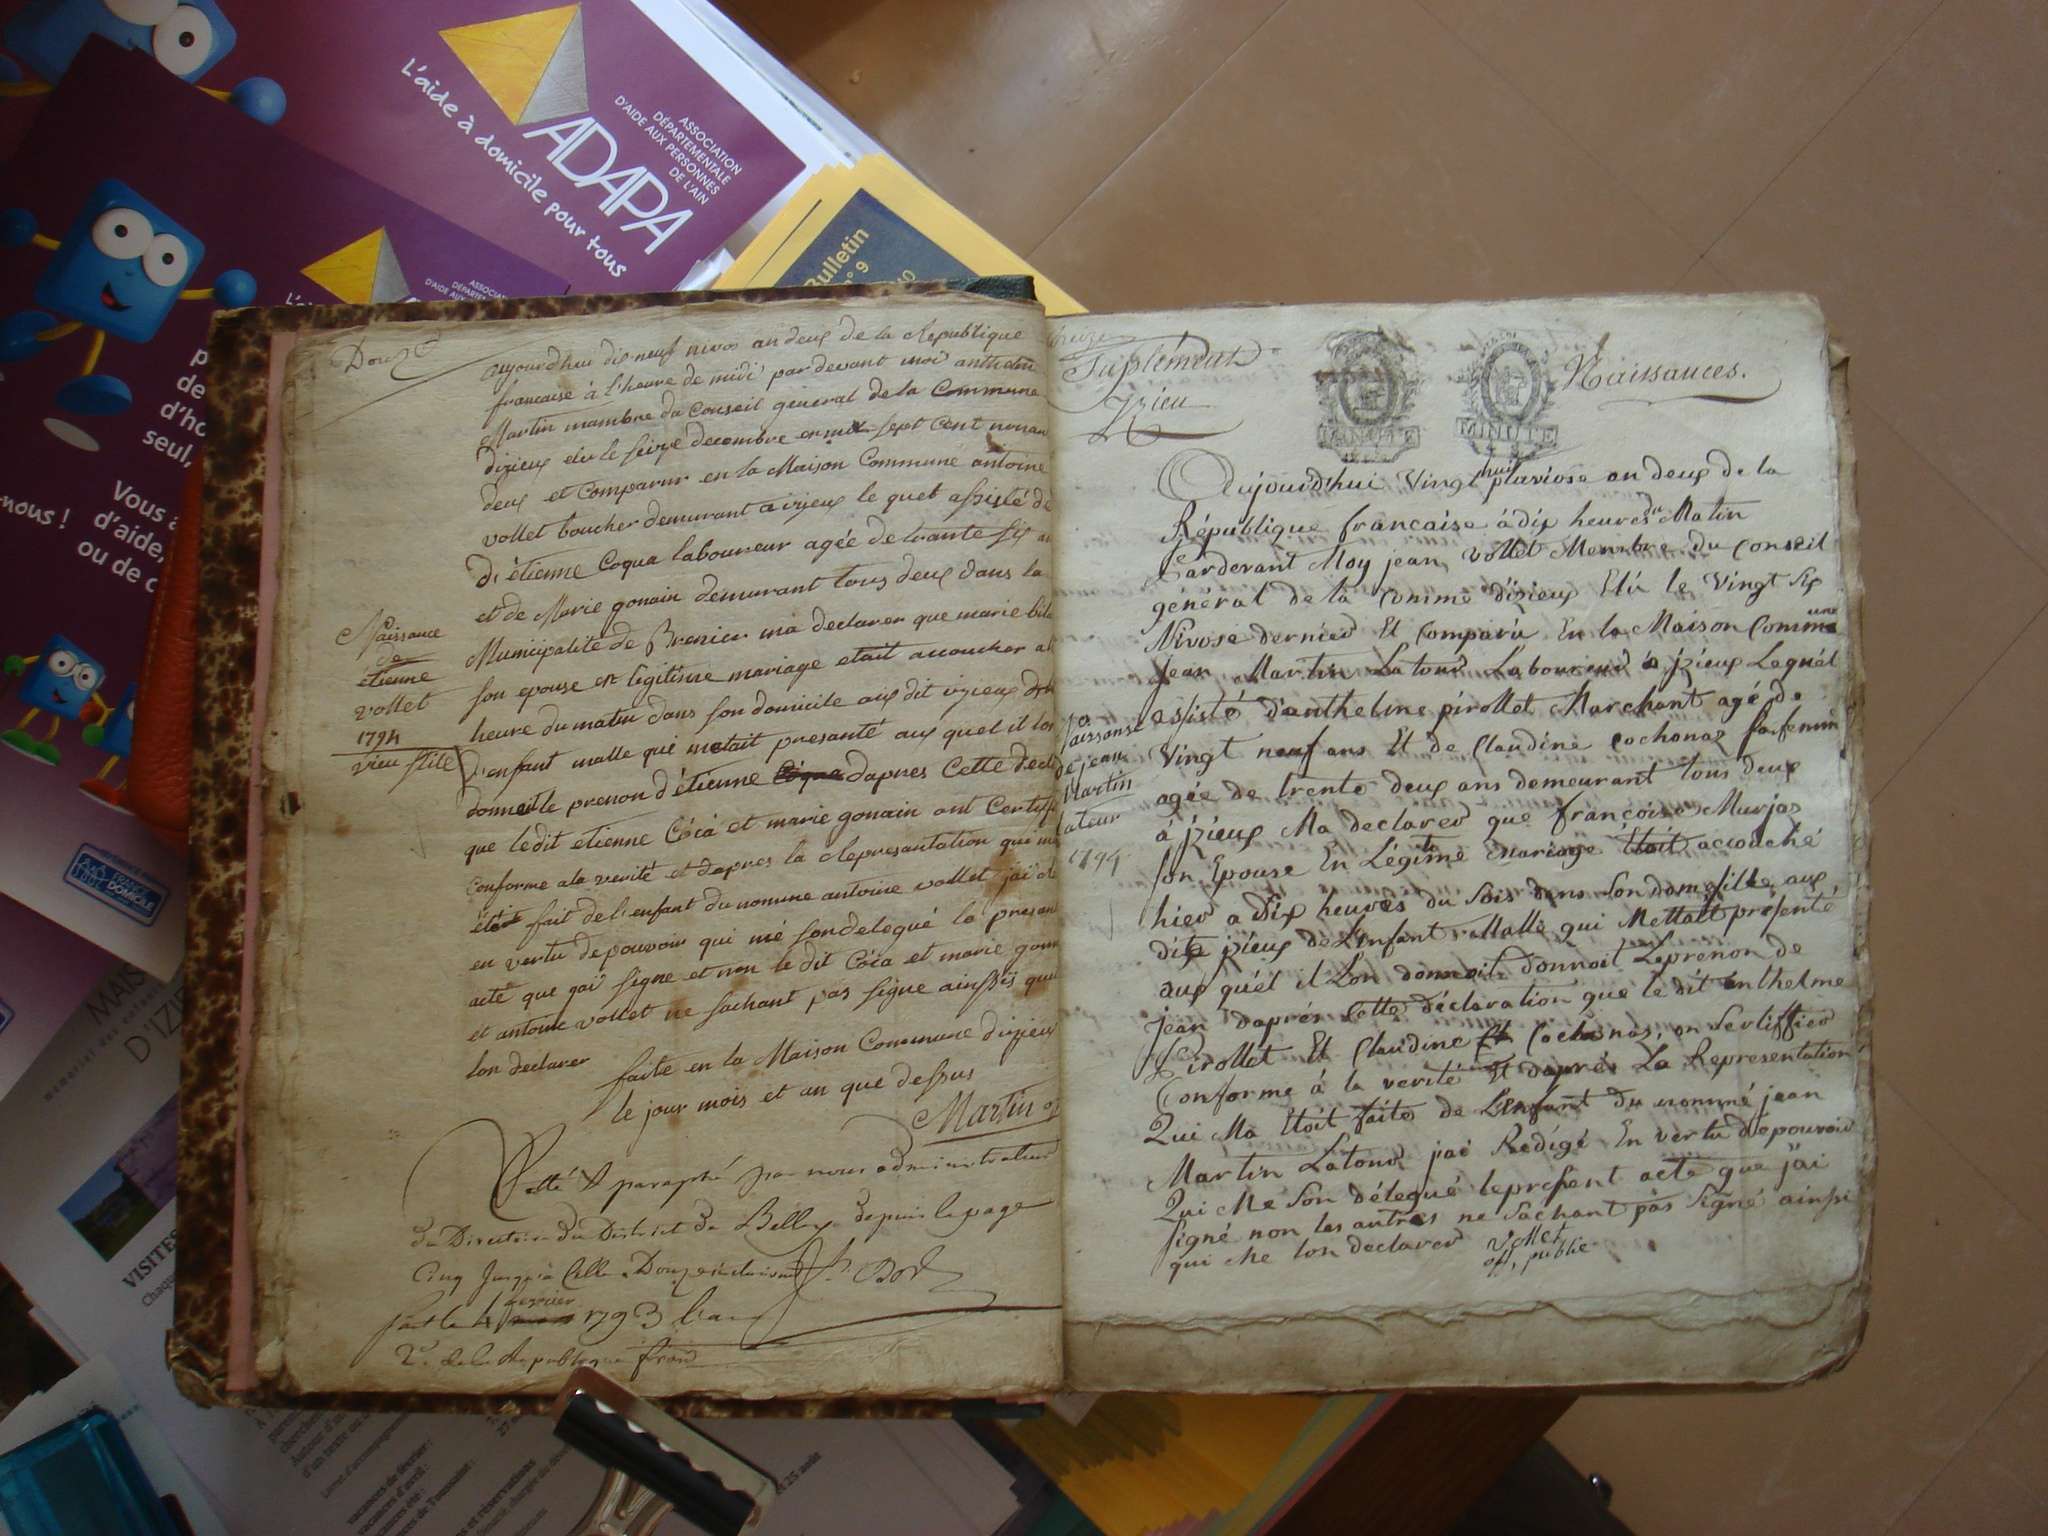 L'aide à domicile pour tous
ADAPA
ASSOCIATION
DÉPARTEMENTALE
D'AIDE AUX PERSONNES
DE L'AIN
Bulletin
n° 9
Vous
d'aide,
ou de
seul,
nous !
DOMICILE
MAIS
D'IZIE
VISITES
Chaque
Douze
aujourd'hui dix neuf nivos an deux de la Republique
francaise à l'heure de midi par devant moi anthelme
Martin mambre du Conseil general de la Commune
dizieux elu le seize decembre en mil sept cent nonan
deux et comparur en la Maison Commune antoine
vollet boucher demurant a izieux le quel assisté de
d'étienne Coqua laboureur agée de trante six an
et de Marie gonain demurant tous deux dans la
Municipalité de Brenier ma declarer que marie
son epouse en legitime mariage etait accoucher a
heure du matin dans son domicile aux dit izieux de
l'enfant malle qui metait presanté aux quel il lon
donneit le prenon d'étienne Coqua dapres Cette decl
que ledit etienne Cóca et marie gonain ont Certiffi
Conforme a la verité et dapres la Representation qui ma
était fait de l'enfant du nomme antoine vollet jai
en vertu de pouvoir qui mé son delegué le presan
acte que jai signe et non le dit Cóca et marie gonn
et antoine vollet ne sachant pas signe ainssis que
lon declarer
faite en la Maison Commune dizieux
le jour mois et an que dessus
Martin of
Naissance
de
étienne
vollet
1794
vieu stile
Cotté & paraphé par nous administrateur
du Directoire du District de Belley depuis la page
Cinq jusqu'à celle Douze
fait le 4 fevrier 1793 l'an
2e. de la Republique
Suplément
Izieu
MINUTE
MINUTE
Naissances.
Aujourd'hui Vingt huit pluviose an deux de la
République francaise à dix heures du Matin
Pardevant Moy jean vollet Membre du Conseil
général de la comme d'izieux Elú le Vingt six
Nivose dernier Et comparú En la Maison Commune
Jean Martin Latour Laboureur à jzieux Lequél
assisté d'anthelme pirollet Marchant agé de
Vingt neuf ans Et de Claudine cochonaz sa femme
agée de trente deux ans demeurant tous deux
á jzieux Ma declarer que françoise Murjas
son Epouse En Légitime mariage étoit accouché
hier a Dix heures du Soir dans Son domesille aux
dite jzieux de L'enfant Malle qui Mettait présenté
aux quél il Lon donneit donnoit Le prenon de
jean daprés Cette déclaration que le dit anthelme
Pirollet Et Claudine Et Cochonaz, on Sertiffier
Conforme á la verité Et daprés La Representation
Qui Ma Etoit faite de L'enfant du nommé jean
Martin Latour jai Redigé En vertu de pouvoir
Qui Me Son délegué le présent acte que j'ai
signé non les autres ne sachant pas signé ainsi
qui me lon declarer
vollet
off, public
Naissonse
de jean
Martin
lateur
1794